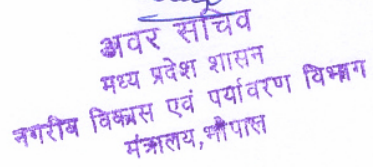 अवर सचिव
मध्य प्रदेश शासन
नगरीय विकास एवं पर्यावरण विभाग
मंत्रालय,भोपाल